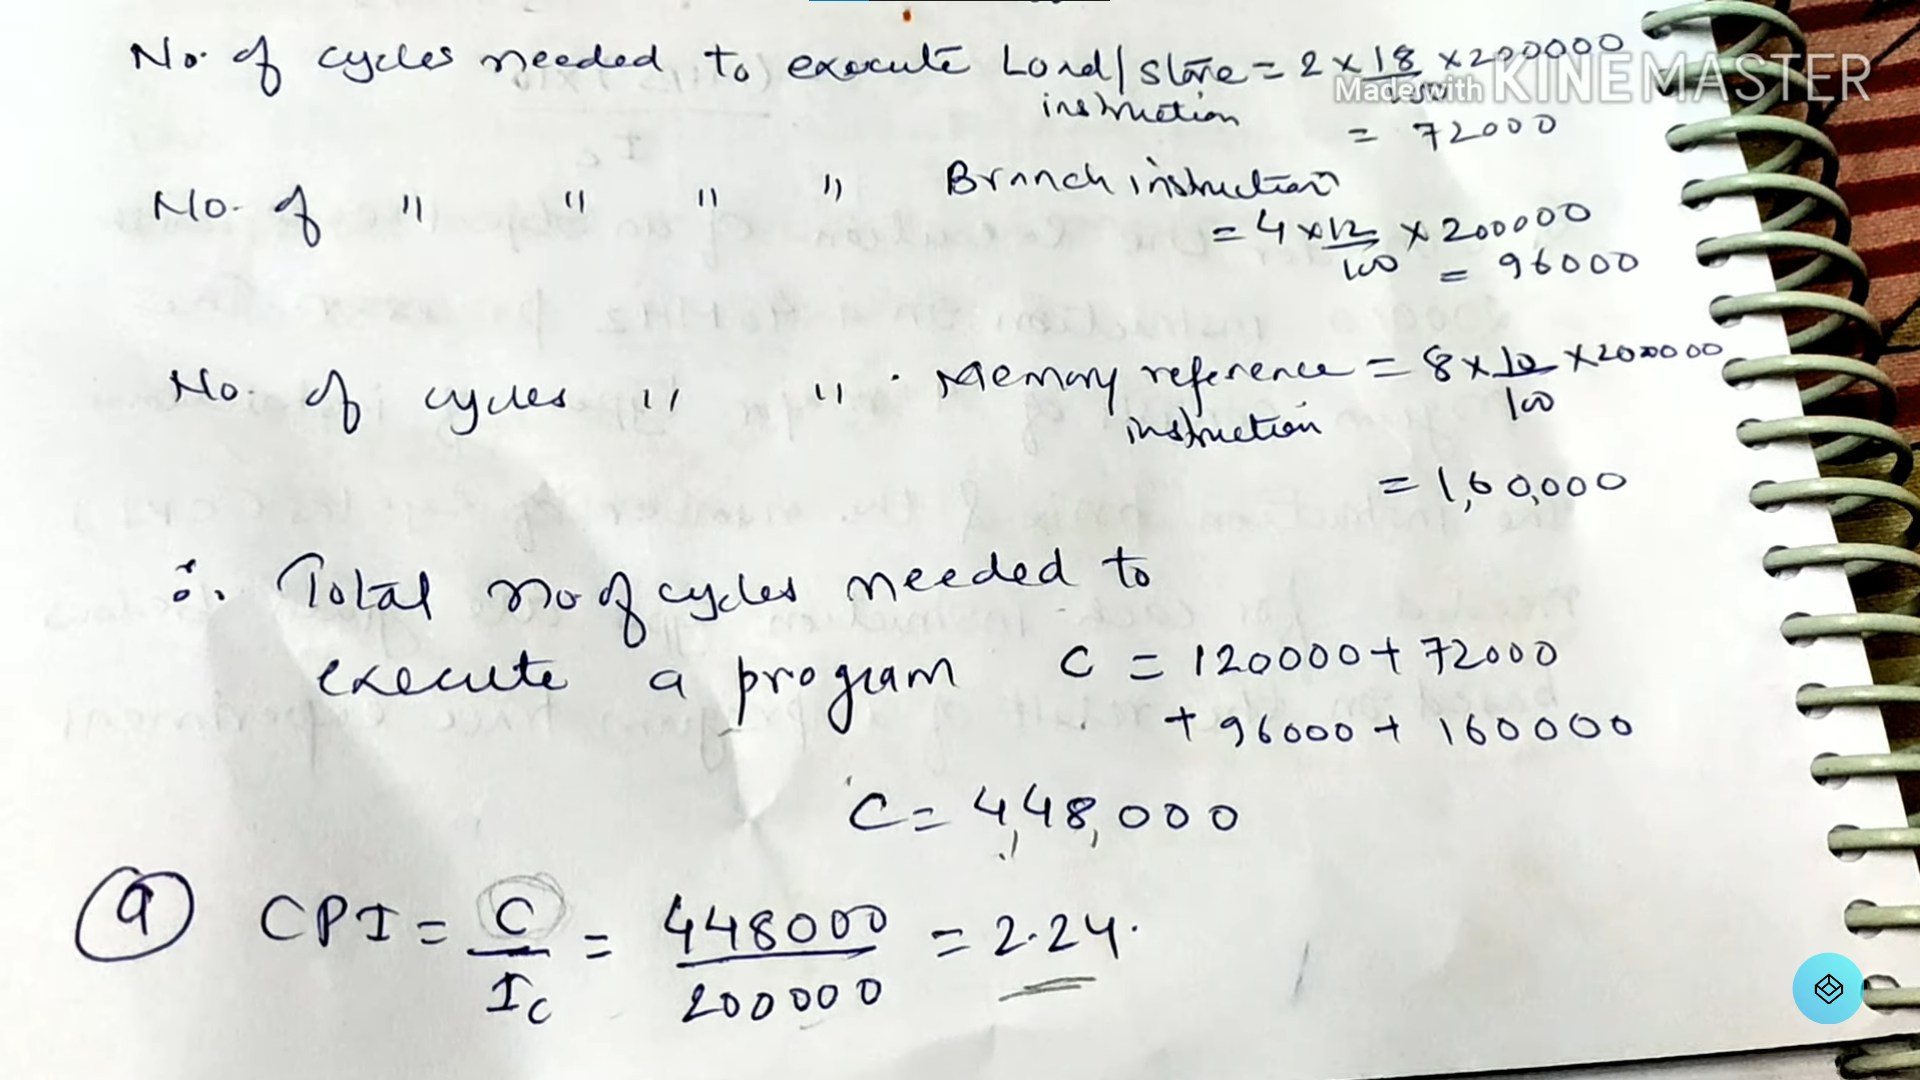 No. of cycles needed to execute Load/store = 2 × 18 × 200000
Made with KINEMASTER
instruction
= 72000
No. of " " " " Branch instruction
= 4 × 12/100 × 200000
= 96000
No. of cycles " " Memory reference = 8 × 10/100 × 200000
instruction
= 1,60,000
∴ Total no of cycles needed to
execute a program C = 120000 + 72000
+ 96000 + 160000
C = 4,48,000
(a) CPI = C/Ic = 448000/200000 = 2.24.